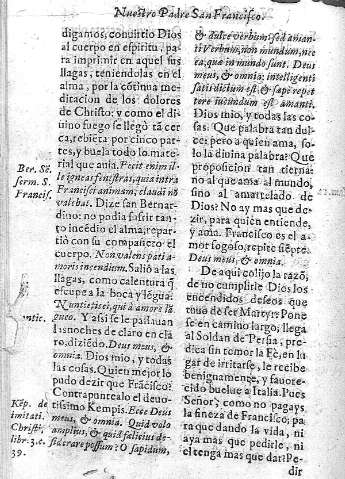 Nuestro Padre San Francisco.
digamos, conuirtio Dios
al cuerpo en espiritu, pa
ra imprimir en aquel sus
llagas, teniendolas en el
alma, por la cõtinua me
ditacion de los dolores
de Christo: y como el di
uino fuego se llegò tã cer
ca, rebiẽta por cinco par
tes, y buela todo lo mate
rial que auia. Fecit enim il
le igneas fenestras, quia intra
Francisci animam, claudi nõ
valebat. Dize san Bernar-
dino: no podia sufrir tan-
to incẽdio el alma, repar-
tiò con su compañero el
cuerpo. Non valens pati a-
moris incendium. Saliò a las
llagas, como calentura q̃
escupe a la boca y lẽgua.
Nuntietis ei, quia amore lã
gueo. Y assi se le passauan
las noches de claro en cla
ro, diziẽdo. Deus meus, &
omnia. Dios mio, y todas
las cosas. Quien mejor lo
pudo dezir que Frãcisco?
Contrapuntealo el deuo-
tissimo Kempis. Ecce Deus
meus, & omnia. Quid volo
amplius, & quid felicius de-
siderare possum? O sapidum,
Ber. Sẽ.
serm. S.
Francis.
Kẽp. de
imitati.
Christi,
libr. 3. c.
39.
& dulce verbum: sed amanti
Verbum, non mundum, nec
ea, quæ in mundo sunt. Deus
meus, & omnia; intelligenti
satis dictum est, & sæpe repet
tere iucundum est amanti.
Dios mio, y todas las co-
sas. Que palabra tan dul-
ce: pero a quien ama, so-
lo la diuina palabra? Què
proposicion tan tierna:
no al que ama al mundo,
sino al amartelado de
Dios? No ay mas que de-
zir, para quien entiende,
y ama. Francisco es el a-
mor fogoso, repite siẽpre.
Deus meus, & omnia.
De aqui colijo la razõ,
de no cumplirle Dios los
encendidos deseos que
tuuo de ser Martyr. Pone
se en camino largo, llega
al Soldan de Persia, pre-
dica sin temor la Fè, en lu
gar de irritarse, le recibe
benignamente, y fauore-
cido buelue a Italia. Pues
Señor, como no pagays
la fineza de Francisco; pa
ra que dando la vida, ni
aya mas que pedirle, ni
el tenga mas que dar? Pe-
dir